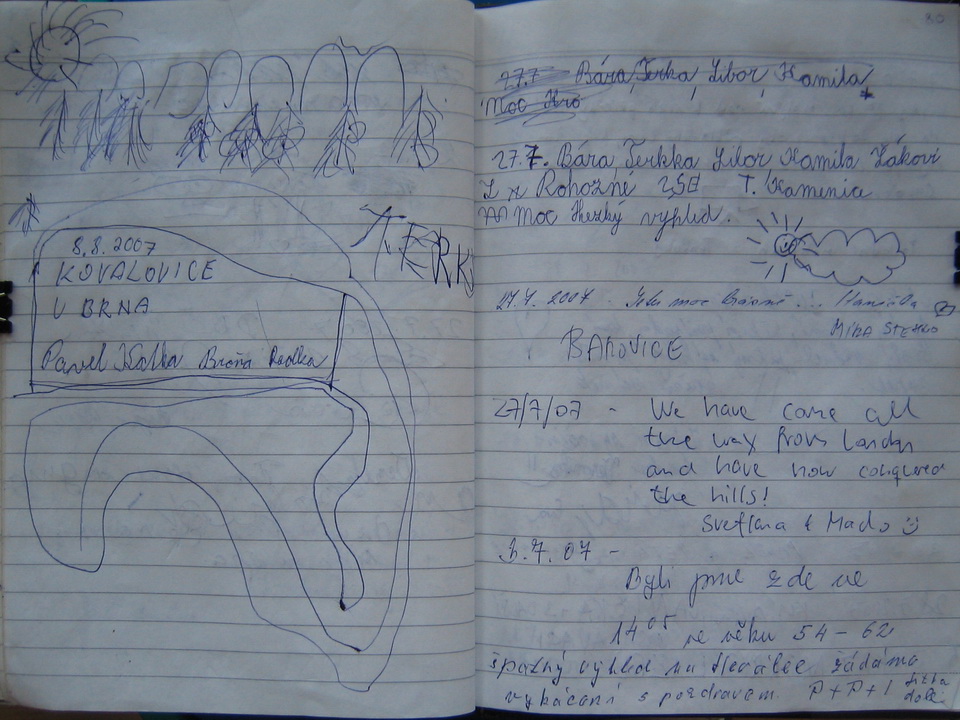 8.8.2007
KOVALOVICE
U BRNA
Pavel Katka Broňa Radka
TERK
30
27.7. Bára, Terka, Libor, Kamila
Moc Hro
27.7. Bára Terkka Libor Kamila Žákovi
z Rohozné ZŠE T. Kamenia
Moc Hezký výhled.
27.7.2007 - moc
BAŇOVICE
27/7/07 - We have come all
the way from London
and have now conquered
the hills!
Svetlana & Mado
3.7.07 -
Byli jsme zde ve
14 05 ve věku 54-62
špatný výhled na žádáme
vykácení s pozdravem P+P+1